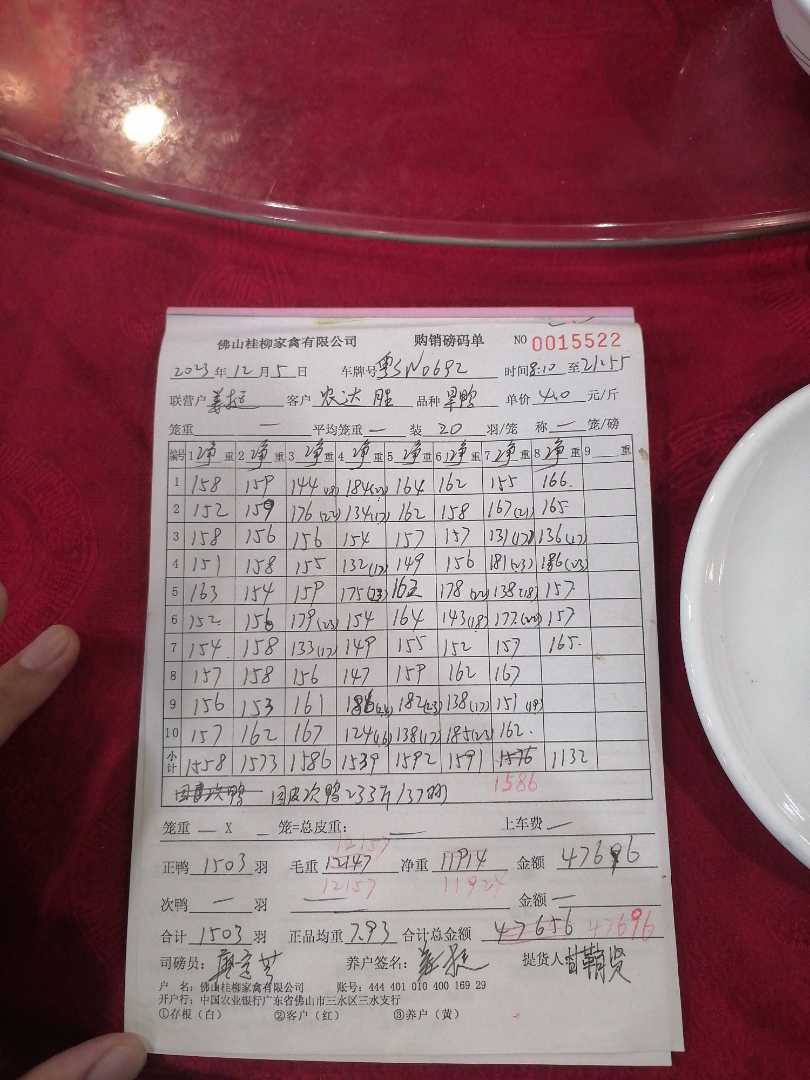 佛山桂柳家禽有限公司 购销磅码单 NO 0015522
2023年12月5日 车牌号粤SN0692 时间8:10至21:55
联营户 客户农达胜 品种旱鸭 单价4.0元/斤
笼重 — 平均笼重 — 装 20 羽/笼 称 — 笼/磅
编号 1净重 2净重 3净重 4净重 5净重 6净重 7净重 8净重 9 重
1 158 159 144(18) 184(23) 164 162 155 166
2 152 159 176(22) 134(17) 162 158 167(21) 165
3 158 156 156 154 157 157 131(17) 136(17)
4 151 158 155 132(17) 149 156 181(23) 186(23)
5 163 154 159 175(23) 162 178(22) 138(18) 157
6 152 156 179(23) 154 164 143(18) 177(22) 157
7 154 158 133(17) 149 155 152 157 165
8 157 158 156 147 159 162 167
9 156 153 161 186(24) 182(23) 138(17) 151(19)
10 157 162 167 124(16) 138(17) 185(23) 162
小计 1558 1573 1586 1539 1592 1591 1576 1132
1586
次鸭233斤/37羽
笼重 — X — 笼=总皮重: — 上车费 —
12157
正鸭 1503 羽 毛重 12147 净重 11914 金额 47696
12157 11924
次鸭 — 羽 — 金额 —
合计 1503 羽 正品均重 7.93 合计总金额 47656 47696
司磅员: 养户签名: 提货人
户 名:佛山桂柳家禽有限公司 账号:444 401 010 400 169 29
开户行:中国农业银行广东省佛山市三水区三水支行
①存根(白) ②客户(红) ③养户(黄)